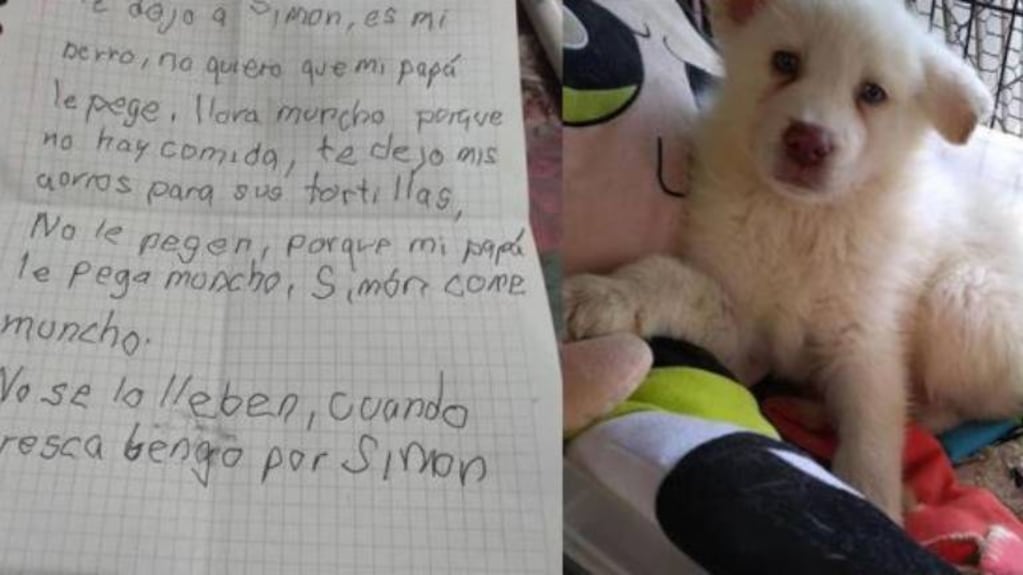 dejo a Simon, es mi
perro, no quiero que mi papá
le pege. llora muncho porque
no hay comida, te dejo mis
aorros para sus tortillas,
No le pegen, porque mi papá
le pega muncho, Simón come
muncho.
No se lo lleben, cuando
resca bengo por Simon